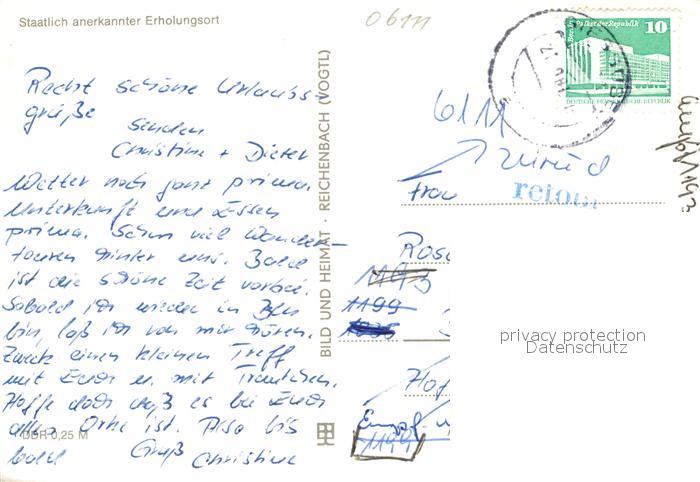 Staatlich anerkannter Erholungsort
0611
Recht schöne Urlaubs-
grüße
senden
Christine + Dieter
Wetter noch ganz prima.
Unterkunft und Essen
prima. Schon viel Wander-
touren hinter uns. Bald
ist die schöne Zeit vorbei.
Sobald ich wieder in Bln
bin, laß ich von mir hören.
Zwecks einen kleinen Treff
mit Euch u. mit
Hoffe doch daß es bei Euch
alles Ok ist. Also bis
bald Gruß Christine
DDR 0,25 M
BILD UND HEIMAT · REICHENBACH (VOGTL)
Palast der Republik
10
DEUTSCHE DEMOKRATISCHE REPUBLIK
6111
zurück
retour
Frau
Rosa
1193
1199
Hof
Empf.
1199
privacy protection
Datenschutz